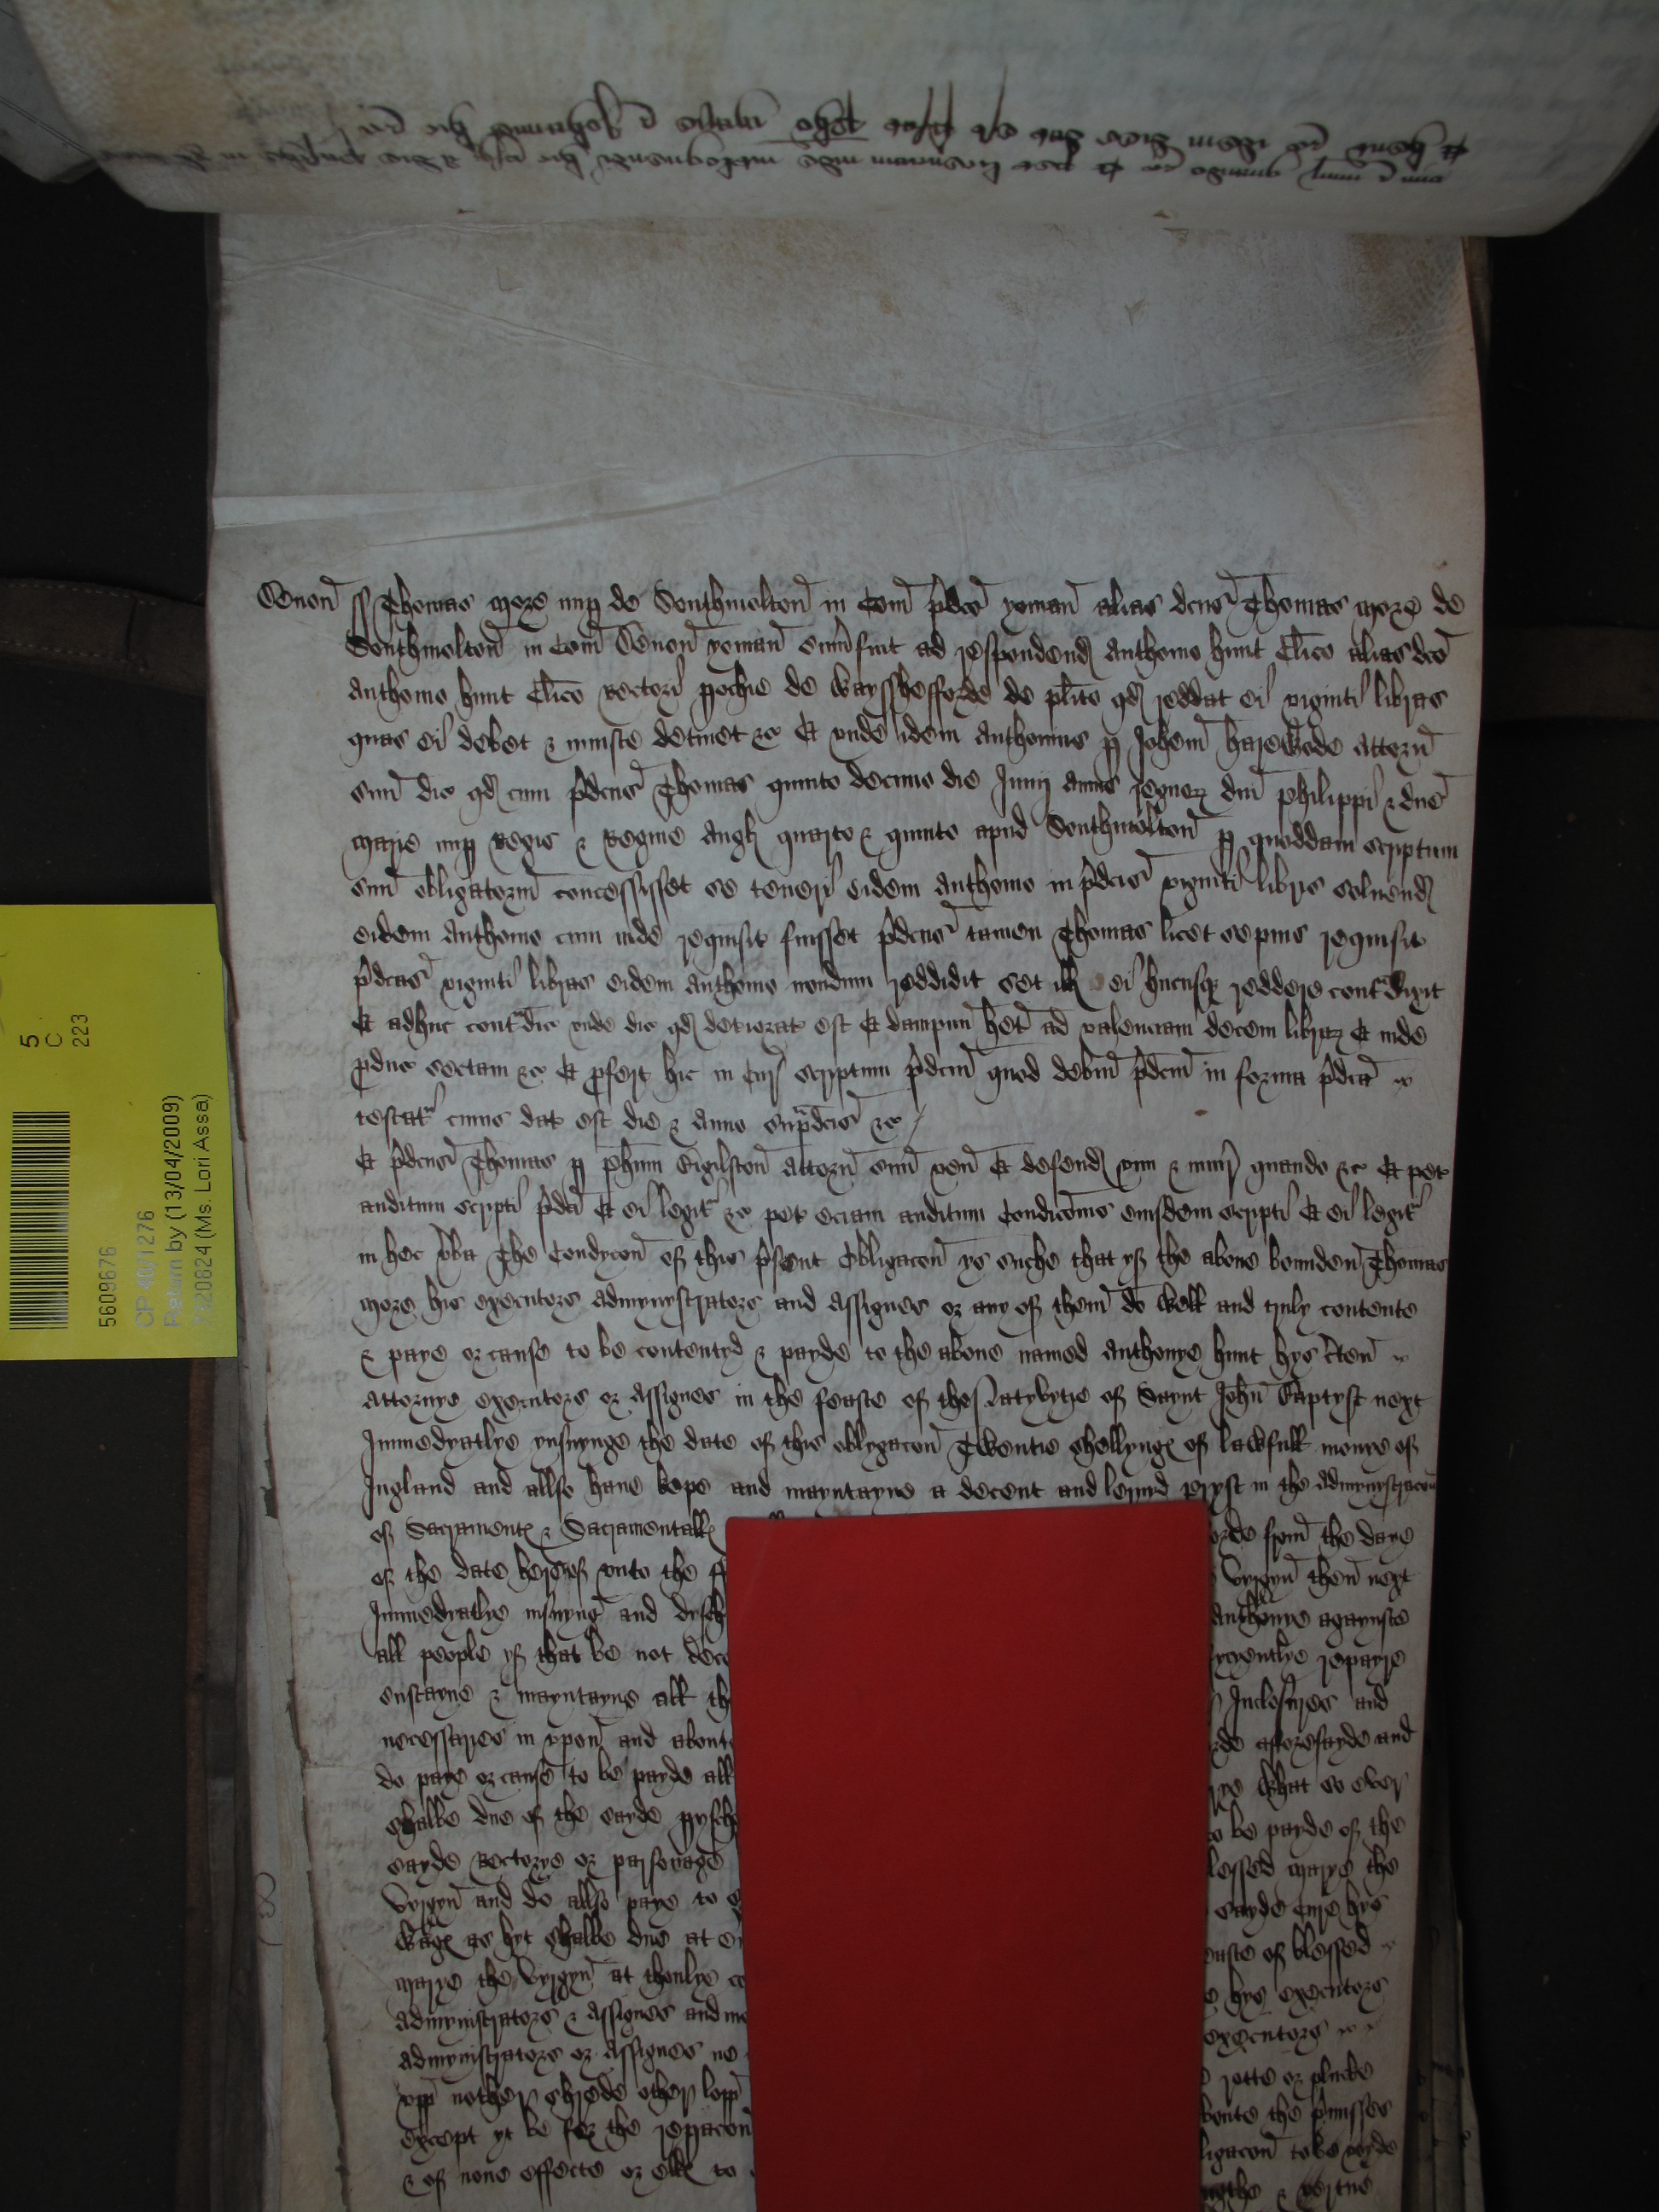 Devon ss Thomas More nup de Southmolton in Com pdco yoman alias dcus Thomas More de
Southmolton in Com Devon yoman sum fuit ad respondend Anthonio Hunt Clico alias dco
Anthonio Hunt Clico Rectori pochie de Wayssheforde de plito qd reddat ei viginti libras
quas ei debet & iniuste detinet &c Et unde idem Anthonius p Johem Harewode Attorn
suu dic qd cum pdcus Thomas quinto decimo die Junij annis regnor dni Philippi & dne
Marie nup Regis & Regine Angl quarto & quinto apud Southmolton p quoddam scriptum
suu obligatoriu concessisset se teneri eidem Anthonio in pdcis viginti libris solvend
eidem Anthonio cum inde requisit fuisset pdcus tamen Thomas licet sepius requisit
pdcas viginti libras eidem Anthonio nondum reddidit set ill ei hucusq reddere contradixit
Et adhuc contradic unde dic qd deteriorat est Et dampnum het ad valenciam decem librar Et inde
produc sectam &c Et profert hic in Cur scriptum pdcm quod debitu pdcm in forma pdca
testat cuius dat est die & Anno supradcis &c
Et pdcus Thomas p Phm Bigilston Attorn suu ven Et defend vim & iniur quando &c Et pet
auditum scripti pdci Et ei legit &c pet eciam auditum Condicois eiusdem scripti Et ei legit
in hec vba The Condycon of this psent Obligacon ys suche that yf the above bounden Thomas
More his executors admynystrators and Assignes or any of them do well and truly contente
& paye or cause to be contentyd & payde to the above named Anthonye Hunt hys cten
Attornye executors or Assignes in the feaste of the Natybytye of Saynt John Baptyst next
Immedyatlye ynsuynge the date of this oblygacon Twentie shellyngs of lawfull monye of
Ingland and allso have kepe and mayntayne a decent and lernyd pryst in the admynystracon
of Sacraments & Sacramentalls orde from the daye
of the date hereof unto the Vyrgyn then next
Immedyatlye insuyng and dysch Anthonye agaynste
all people yf that be not dece ycyentlye repayre
sustayne & mayntayne all th Inclosures and
necessaries in vpon and aboute rde afforesayde and
do paye or cause to be payde all what so ever
shalbe due of the sayde pyshe to be payde of the
sayde Rectorye or parsonage lessed Marye the
Vyrgyn and do allso paye to sayde Cure hys
Wags as hyt shalbe due at easte of blessed
Marye the Vyrgyn at thonlye co hys executors
admynistrators & Assignes and executors
admynistrators or Assignes no rotte or plucke
vpp nother shrede other lopp boute the pmisses
except yt be for the repacon ligacon to be voyde
& of none effecte or ells to ngthe & vertue
5
C
223
5609676
CP 40/1276
Return by (13/04/2009)
(Ms. Lori Assa)